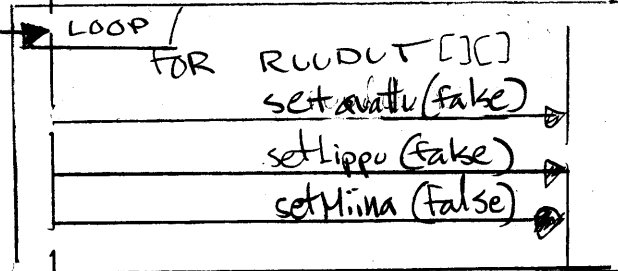 LOOP
FOR RUUDUT [][]
setAvattu (false)
setLippu (false)
setMiina (False)